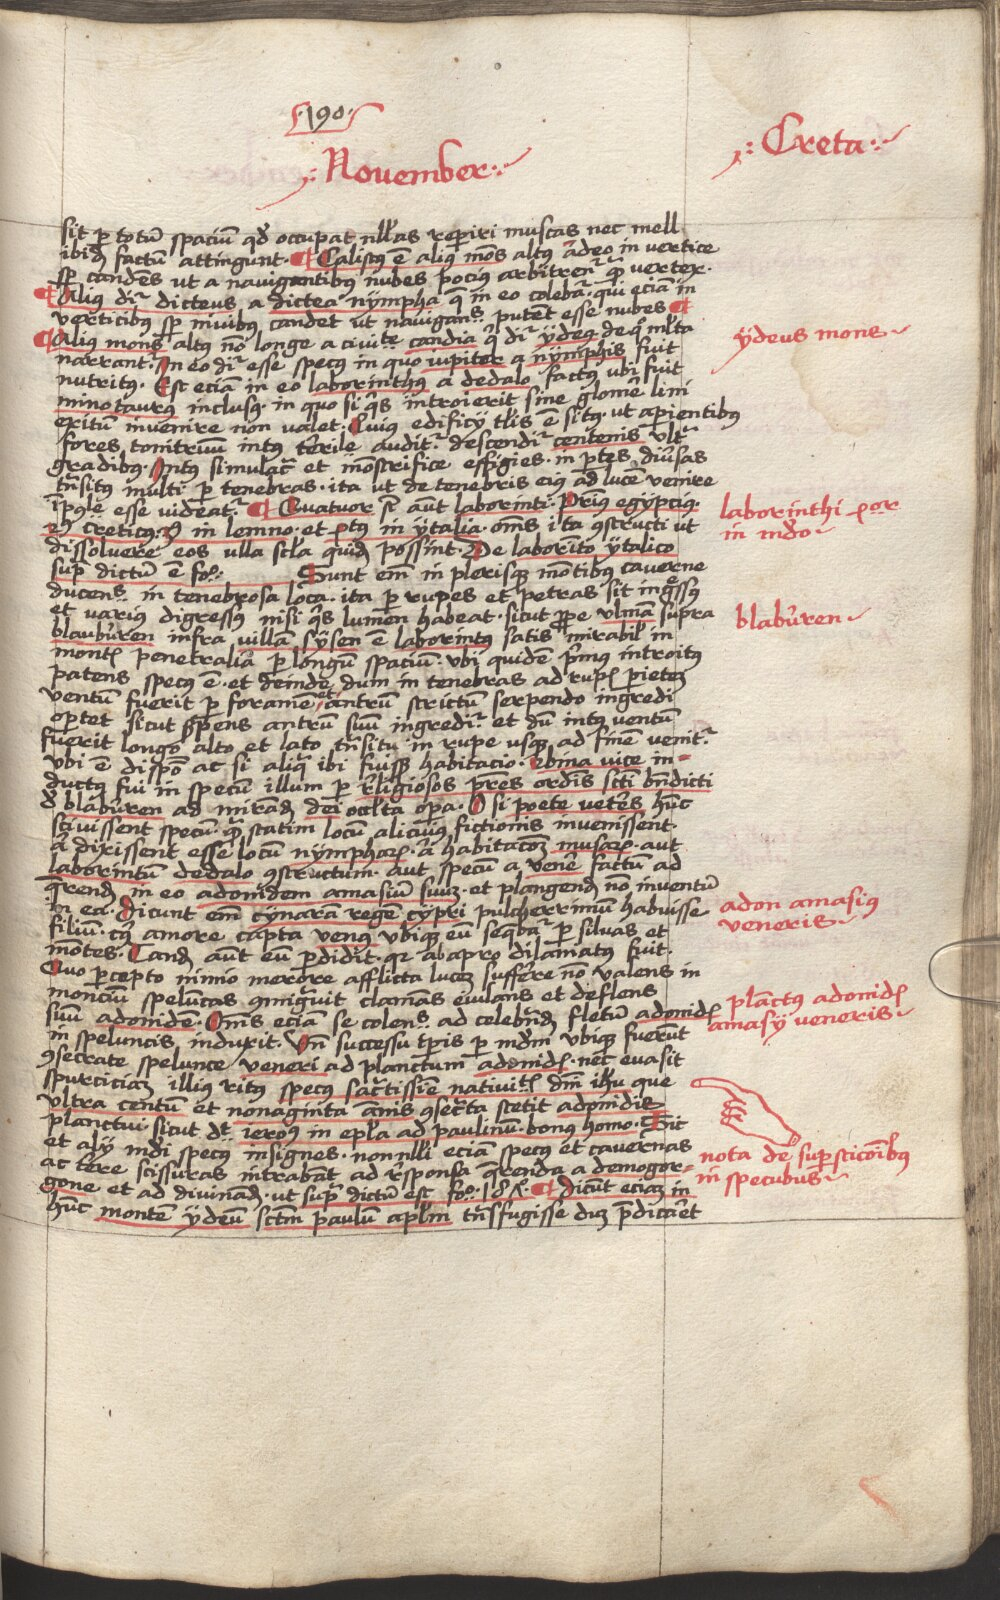 ·190·
·: November :·
·: Creta :·
sit p totū spaciū qd occupat nllas reperiri muscas nec mell
ibid factū attingunt · ¶ Caliscus ē alius mōs altus adeo in vertice
sp candēs ut a navigantibus nubes pocius arbitrenr qz vertex ·
¶ Alius dir dicteus a dictea nympha q in eo colebar qui eciā in
verticibus sp nivibus candet ut navigans putent esse nubes ¶
¶ Alius mons altus nō longe a civite candia q dir ÿdeus de quo mlta
narrant · In eo dir esse specus in quo iupiter a nymphis fuit
nutritus · Est eciā in eo laborinthus a dedalo factus ubi fuit
minotaurus inclusus · in quo si qs introierit sine glomere lini
exitū invenire non valet · Cuius edificÿ tlis ē situs · ut aperientibus
fores tonitruū intus terrile auditr descendir centenis vltr
gradibus · Intus simulacra et mōstrifice effigies · in ptes diūsas
trnsitus multi p tenebras · ita ut de tenebris eius ad lucē venire
īpole esse videatr · ¶ Quatuor sr aut laborinti · Prius egypcius ·
creticus · in lemno · et in ÿtalia · oms ita ɔstructi ut
dissolvere eos ulla secla quid possint · De laborīto ÿtalico
supra dictū ē fo · Sunt em in plerisqz mōtibus caverne
ducens in tenebrosa loca · ita p rupes et petras sit ingressus
et varius digressus nisi qs lumen habeat · sicut prope vlmā supra
blaubûren infra villam sÿsen ē laborintus satis mirabil in
montes penetralia p longū spaciū · ubi quidē prmus introitus
patens specus ē · et deinde dum in tenebras ad rupes pietem
ventum fuerit p foramē et antrū strictū serpendo ingredi
oportet sicut serpens antrū suū ingredir et dū intus ventū
fuerit longo alto et lato trnsitu in rupe usqz ad finē venitr
ubi ē dispo ac si aliqua ibi fuisset habitacio · vice in=
ductus fui in specum illum p religiosos pres ordis scti bndicti
d blabûren ad mirand dei occlta opa · O si poete veteres hunc
scivissent specum · statim locū alicuius fictionis invenissent ·
a dixissent esse locū nympharum · a habitacōm musarum · aut
laborintū dedalo ɔstructum · aut specū a venere factū ad
qrend in eo adonidem amasiū suum · et plangend nō inventū
in ea · Dicunt em cynaram regē cypri pulcherrimū habuisse
filiū · cuius amore capta venus ubiqz eū seqbar p silvas et
mōtes · Tand aut eū pdidit · qr ab apro dilaniatus fuit ·
Quo pcepto nimio merore afflicta lucem sufferre nō valens in
montiū speluncas ɔmigravit clamās eiulans et deflens
suū adonidē · Oms eciā se colens ad celebrnd fletū adonides
in speluncis induxit · Vn successu tpis p mdm ubiqz fuerut
ɔsecrate spelunce veneri ad planctum adonides · nec evasit
spurciciam illius ritus specus sactissie nativites dm ihu que
ultra centū et nonaginta annis ɔsecrta stetit adonidis
planctui · sicut dt ierous in epla ad paulinum · bonus homo · Sic
et alÿ mdi specus insignes · non nlli eciā specus et cavernas
ac terre scissuras intrabāt ad rsponsa qrenda a demogor=
gone et ad divinad · ut supra dictū est fo · ¶ dicūt eciam in
hūc montē ÿdeū sctm paulū aplm trnsfugisse dum pdicaret
ÿdeus mons
laborinthi
in mdo
blabûren
adon amasius
veneris
planctus adonides
amasÿ veneris
nota de supsticōibus
in specubus